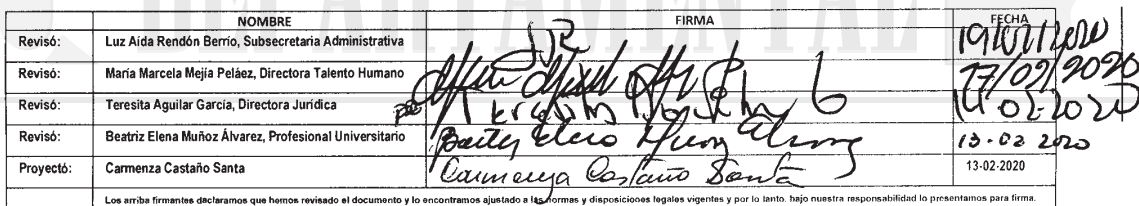 DEPARTAMENTAL
NOMBRE FIRMA FECHA
Revisó: Luz Aída Rendón Berrío, Subsecretaria Administrativa 19/02/2020
Revisó: María Marcela Mejía Peláez, Directora Talento Humano 17/02/2020
Revisó: Teresita Aguilar García, Directora Jurídica 14-02-2020
Revisó: Beatriz Elena Muñoz Álvarez, Profesional Universitario Beatriz Elena Muñoz Álvarez 13-02 2020
Proyectó: Carmenza Castaño Santa Carmenza Castaño Santa 13-02-2020
Los arriba firmantes declaramos que hemos revisado el documento y lo encontramos ajustado a las normas y disposiciones legales vigentes y por lo tanto, bajo nuestra responsabilidad lo presentamos para firma.